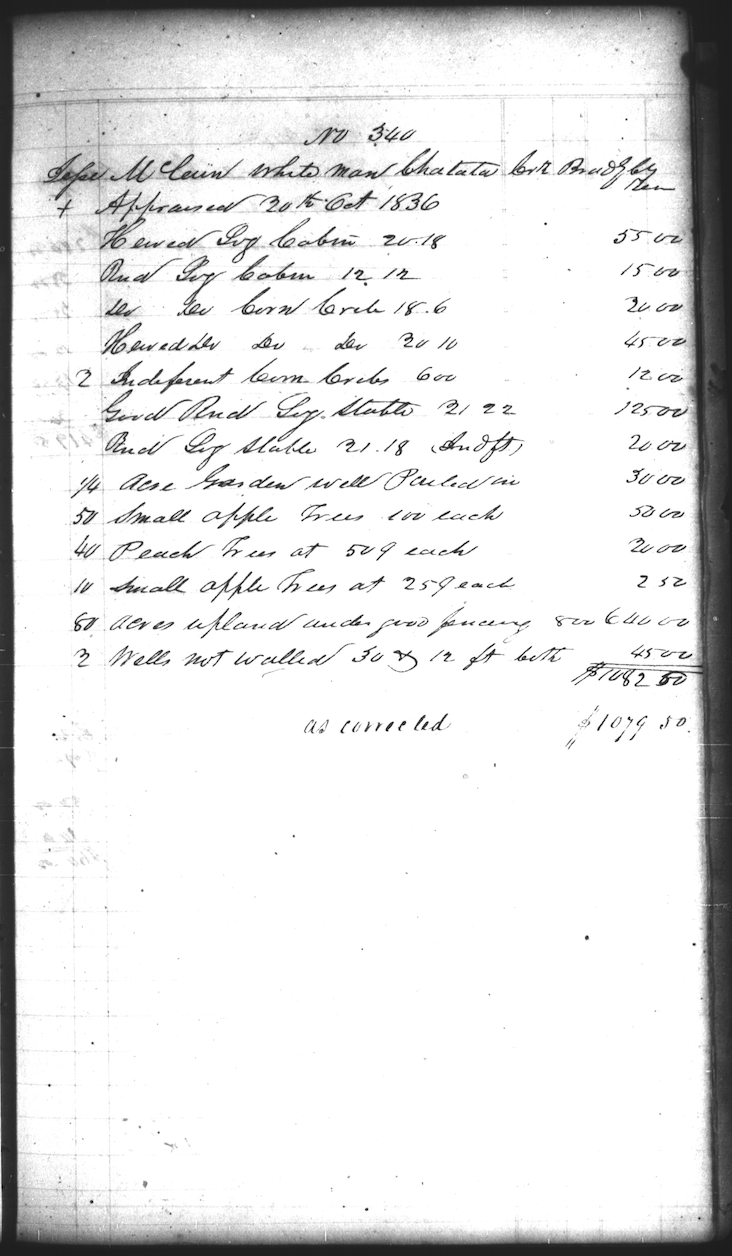 No 340
Jesse McLain White man Chatata Crk Bradly Cty
Ten
+ Appraised 20th Oct 1836
Hewed Log Cabin 20.18 55 00
Rnd Log Cabin 12.12 15 00
Do Do Corn Crib 18.6 20 00
Hewed Do Do Do 30 10 45 00
2 Indeferent Corn Cribs 600 12 00
Good Rnd Log Stable 21 22 125 00
Rnd Log Stable 21.18 (Indft) 20 00
1/4 Acre Garden well Pailed in 30 00
50 Small apple Trees 100 each 50 00
40 Peach Trees at 50¢ each 20 00
10 Small apple Trees at 25¢ each 2 50
80 Acres upland under good fencing 800 640 00
2 Wells not walled 30 & 12 ft both 45 00
$1082 50
as corrected $1079 50